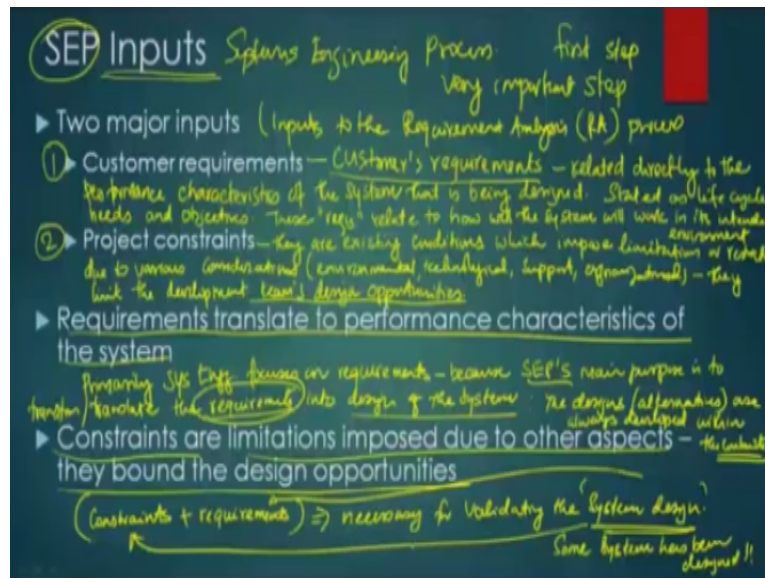 SEP Inputs Systems Engineering Process first step
very important step
Two major inputs (Inputs to the Requirement Analysis (RA) process
① Customer requirements — Customer's requirements — related directly to the
performance characteristics of the system that is being designed. Stated as life cycle
needs and objectives. These "reqs" relate to how well the system will work in its intended
environment
② Project constraints — they are existing conditions which impose limitation or
due to various considerations (environmental, technological, support, organizational) — they
limit the development team's design opportunities
Requirements translate to performance characteristics of
the system
Primarily Sys Engg focuses on requirements — because SEP's main purpose is to
transform/translate the requirements into design of the system. The designs (alternatives) are
always developed within
Constraints are limitations imposed due to other aspects – the constraints
they bound the design opportunities
(Constraints + requirements) ⇒ necessary for validating the 'System design'
Some System has been
designed!!